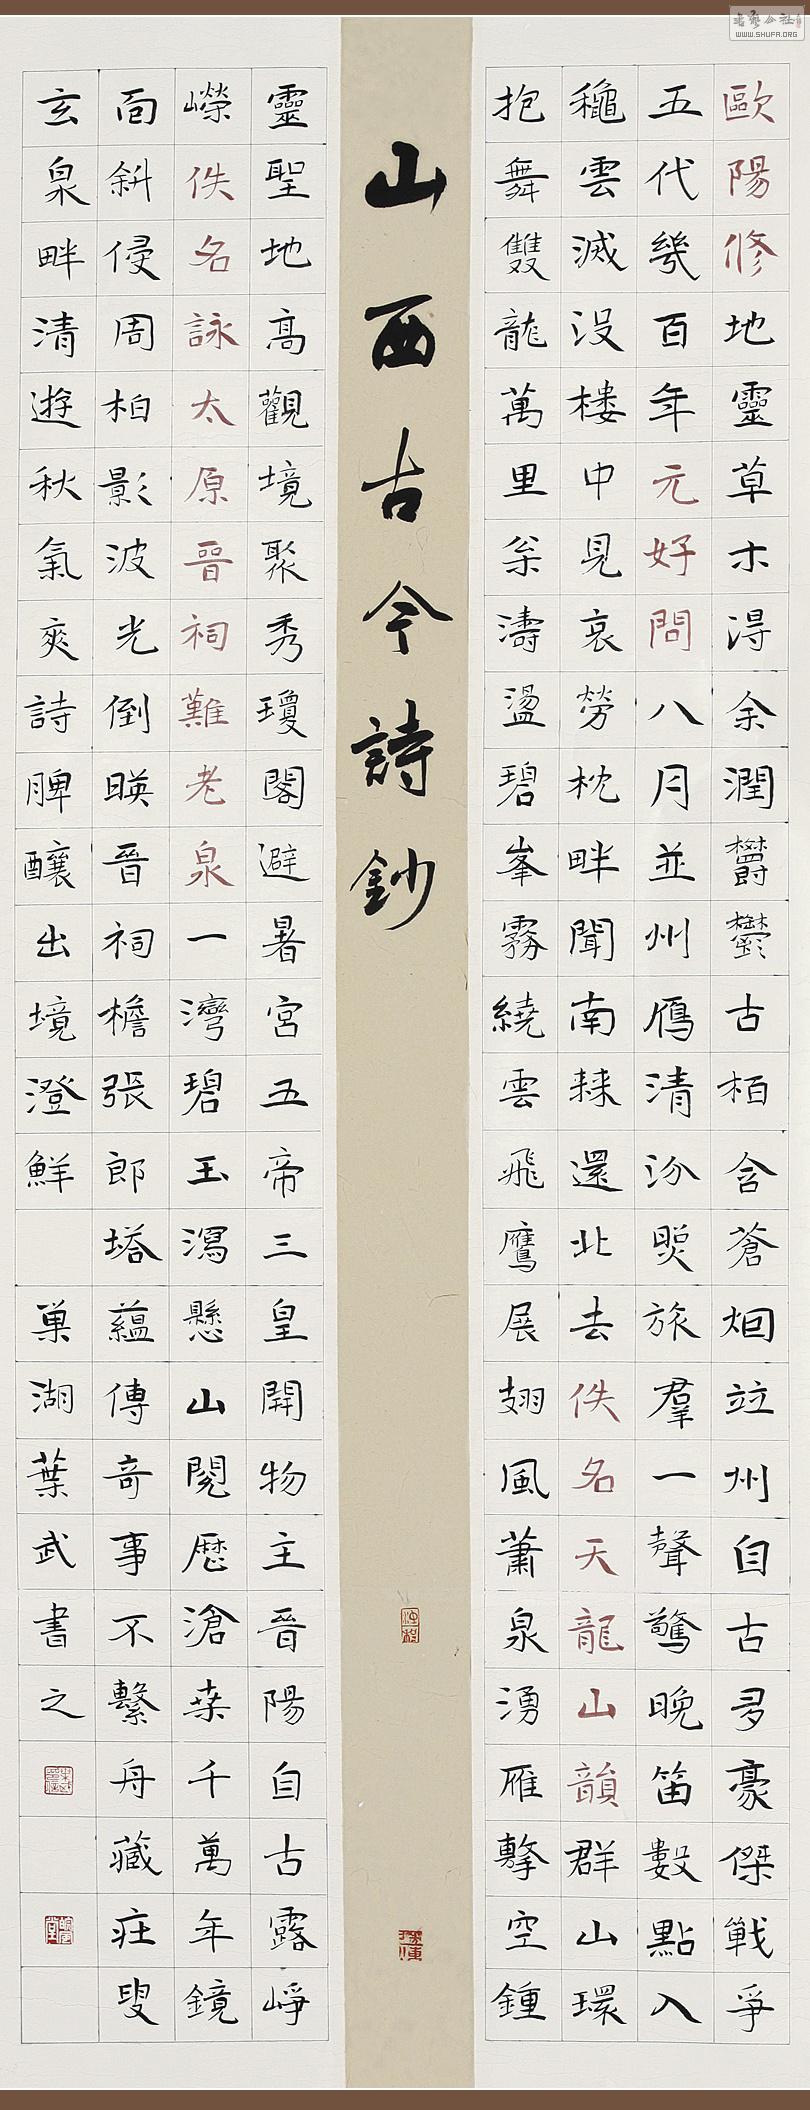 歐陽修地靈草木得余潤鬱鬱古栢含蒼烟竝州自古多豪傑戰爭
五代幾百年元好問八月並州鴈清汾照旅羣一聲驚晚笛數點入
穐雲滅没樓中見哀勞枕畔聞南棶還北去佚名天龍山韻群山環
抱舞雙龍萬里枀濤盪碧峯霧繞雲飛鷹展翅風蕭泉湧雁擊空鍾
山西古今詩鈔
靈聖地高觀境聚秀瓊閣避暑宮五帝三皇開物主晉陽自古露崢
嶸佚名詠太原晉祠難老泉一灣碧玉瀉懸山閱歷滄桒千萬年鏡
面斜侵周柏影波光倒暎晉祠檐張郎塔蘊傳奇事不繫舟藏莊叟
玄泉畔清遊秋氣爽詩脾釀出境澄鮮 巢湖葉武書之
WWW.SHUFA.ORG